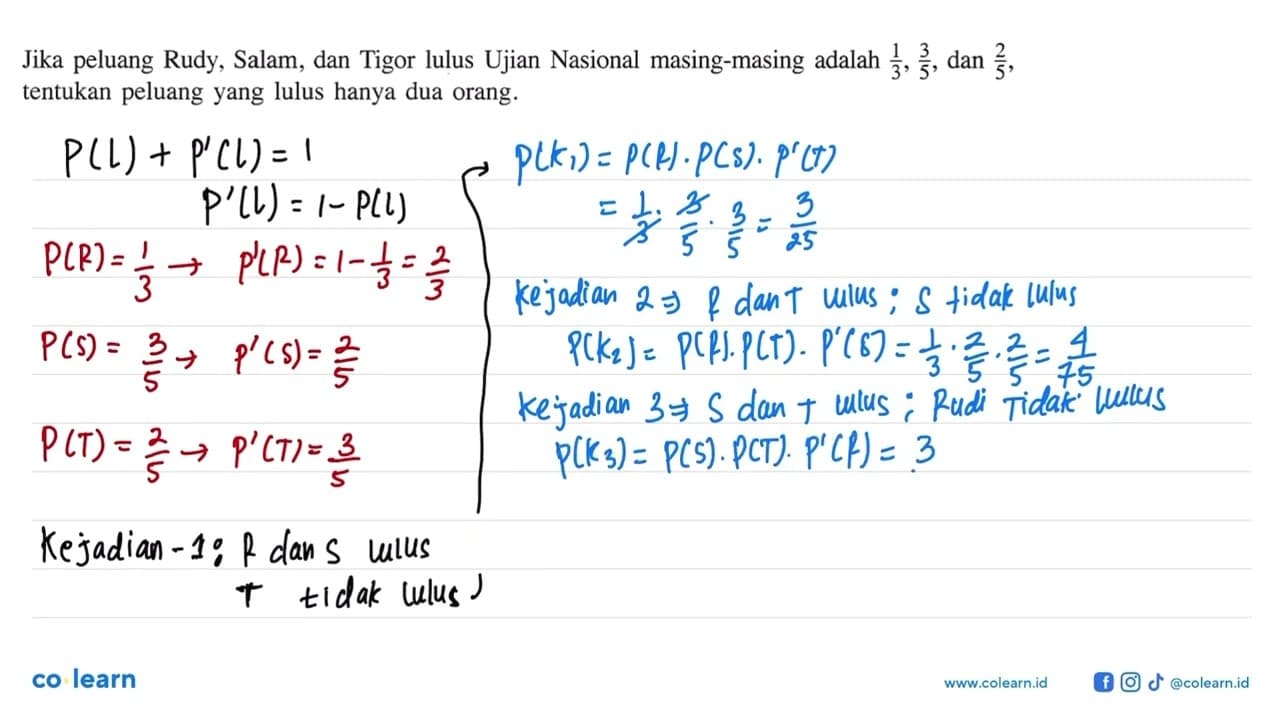 Jika peluang Rudy, Salam, dan Tigor lulus Ujian Nasional masing-masing adalah 1/3, 3/5, dan 2/5,
tentukan peluang yang lulus hanya dua orang.
P(L) + P'(L) = 1
P'(L) = 1 - P(L)
P(R) = 1/3 → P'(R) = 1 - 1/3 = 2/3
P(S) = 3/5 → P'(S) = 2/5
P(T) = 2/5 → P'(T) = 3/5
Kejadian - 1 ; R dan S lulus
T tidak lulus
P(K1) = P(R) . P(S) . P'(T)
= 1/3 . 3/5 . 3/5 = 3/25
Kejadian 2 ⇒ R dan T lulus ; S tidak lulus
P(K2) = P(R) . P(T) . P'(S) = 1/3 . 2/5 . 2/5 = 4/75
Kejadian 3 ⇒ S dan T lulus ; Rudi Tidak lulus
P(K3) = P(S) . P(T) . P'(R) = 3
co learn
www.colearn.id
@colearn.id